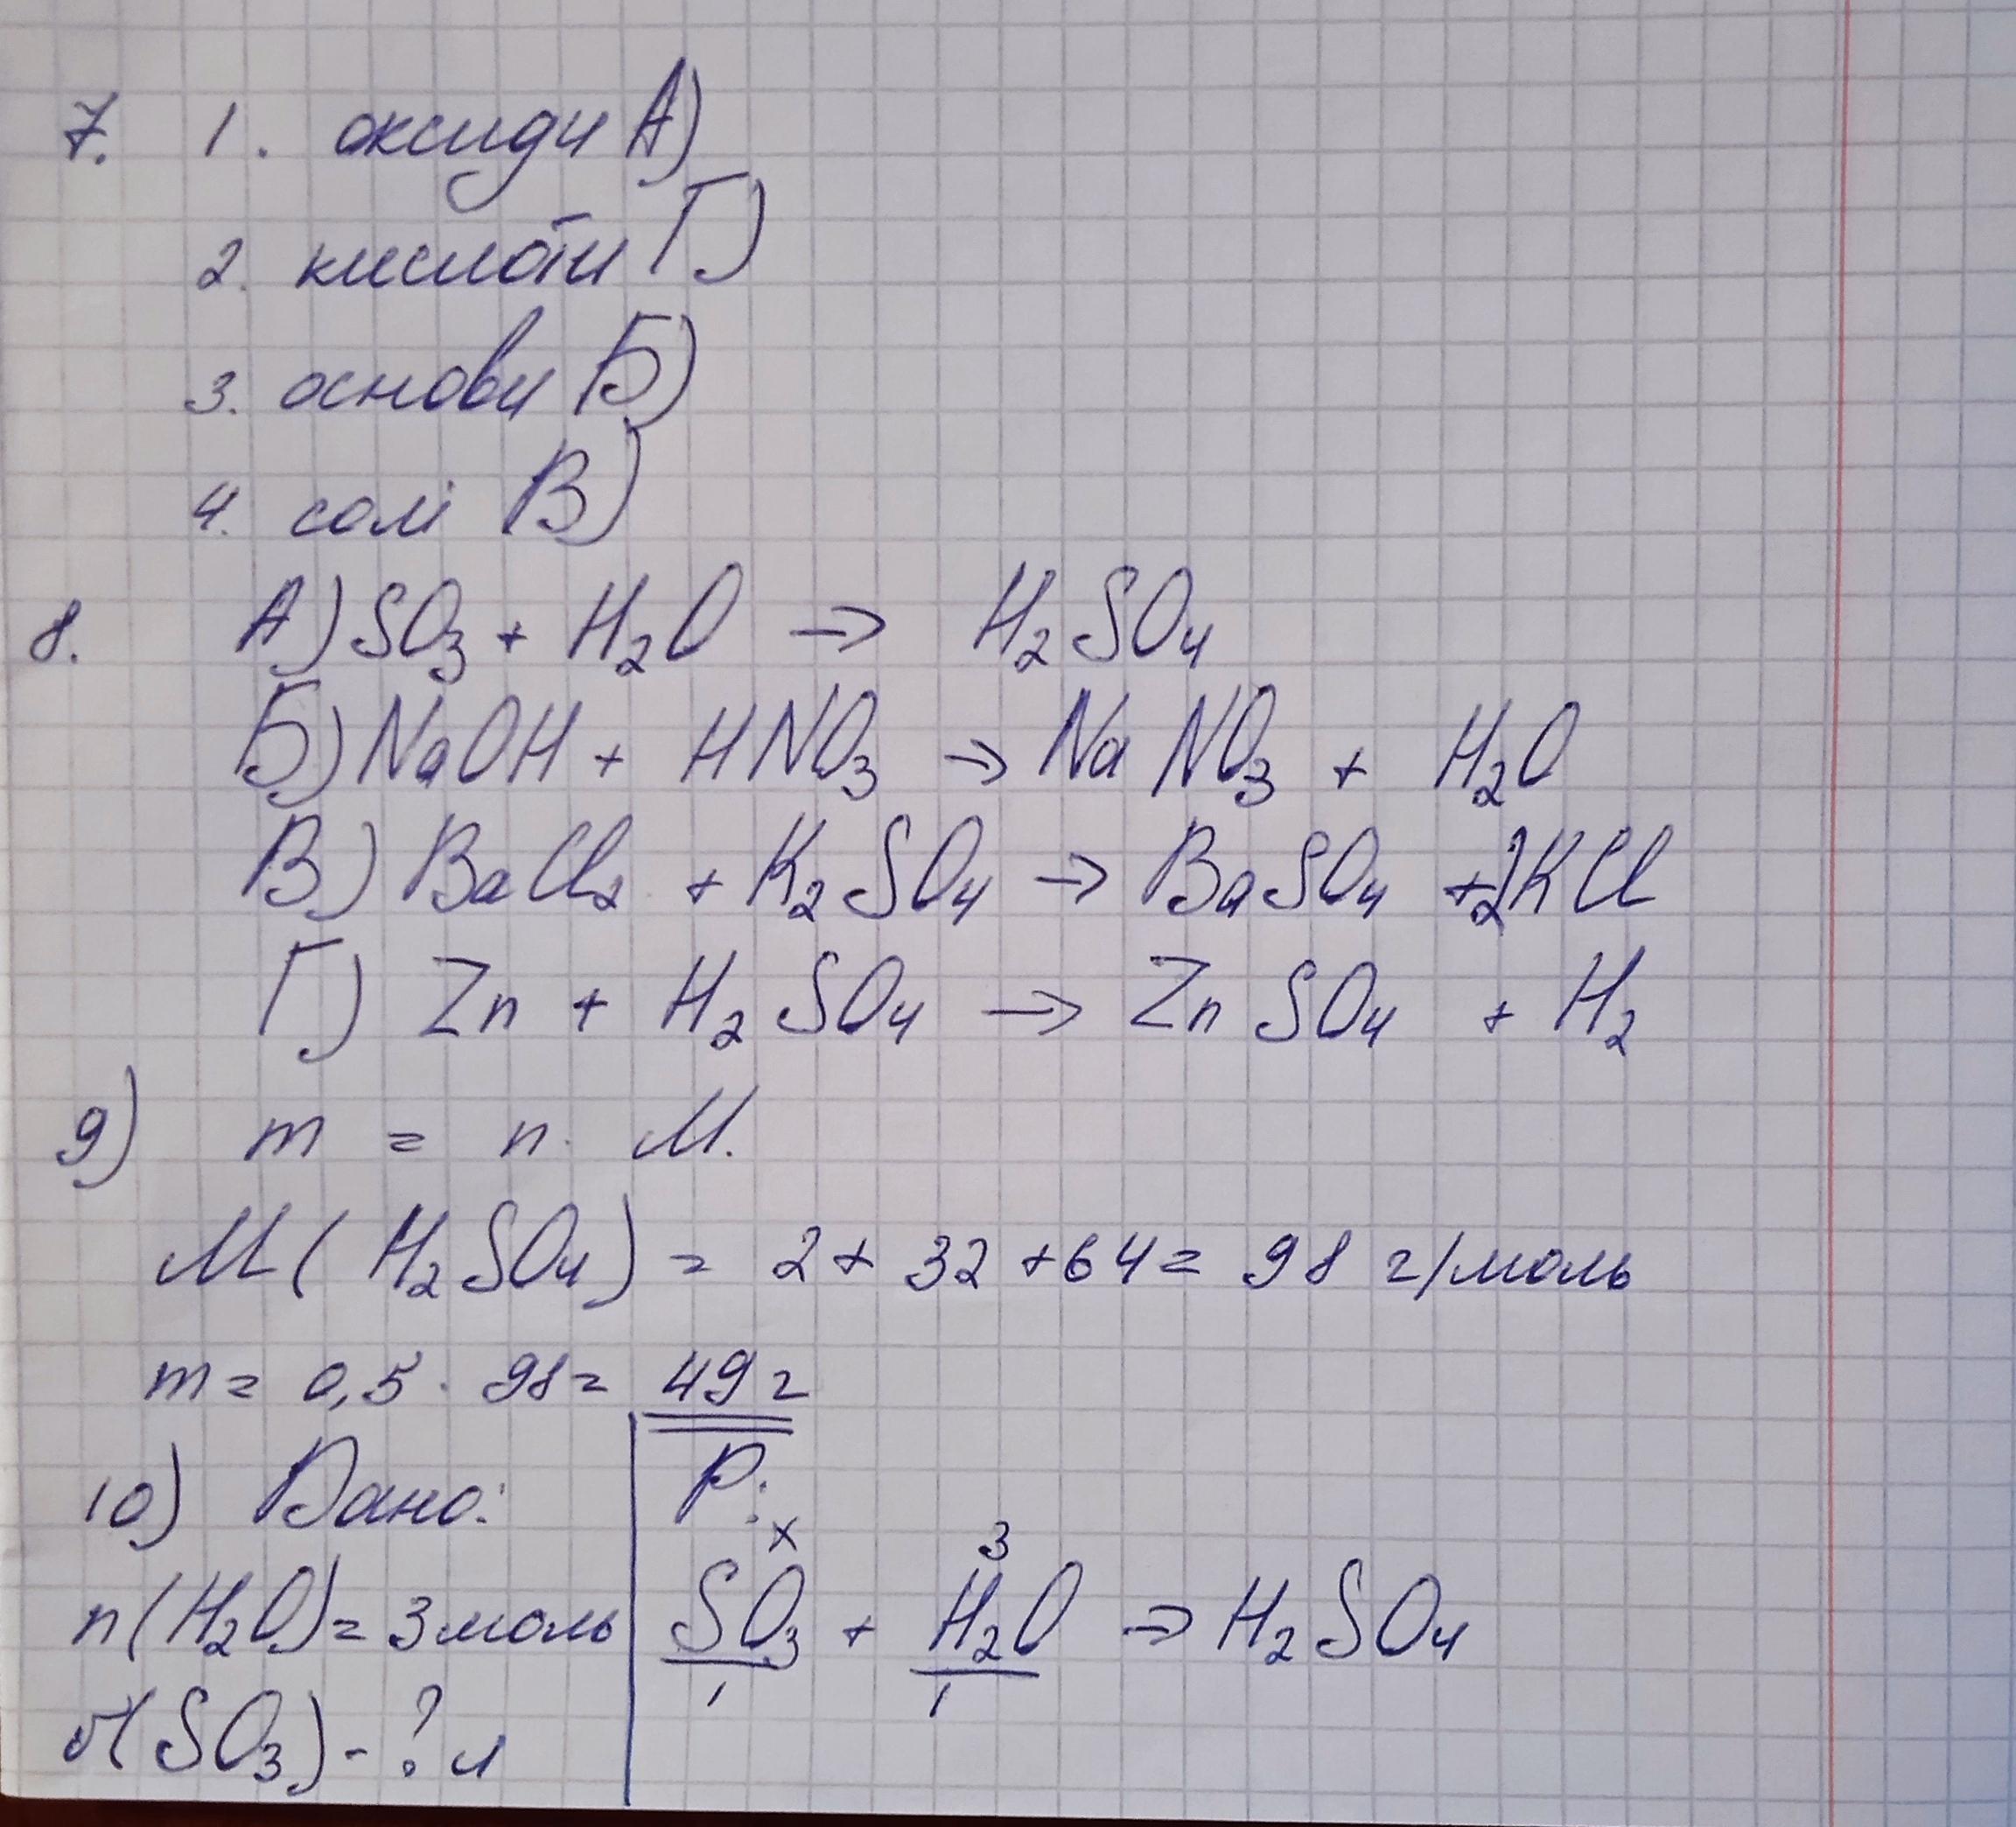 7. 1. оксиди А)
2. кислоти Г)
3. основи Б)
4. солі В)
8. А) SO₃ + H₂O → H₂SO₄
Б) NaOH + HNO₃ → NaNO₃ + H₂O
В) BaCl₂ + K₂SO₄ → BaSO₄ + 2KCl
Г) Zn + H₂SO₄ → ZnSO₄ + H₂
9) m = n · M.
M(H₂SO₄) = 2 + 32 + 64 = 98 г/моль
m = 0,5 · 98 = 49 г
10) Дано:
n(H₂O) = 3 моль
(SO₃) - ? л
Р:
x 3
SO₃ + H₂O → H₂SO₄
1 1